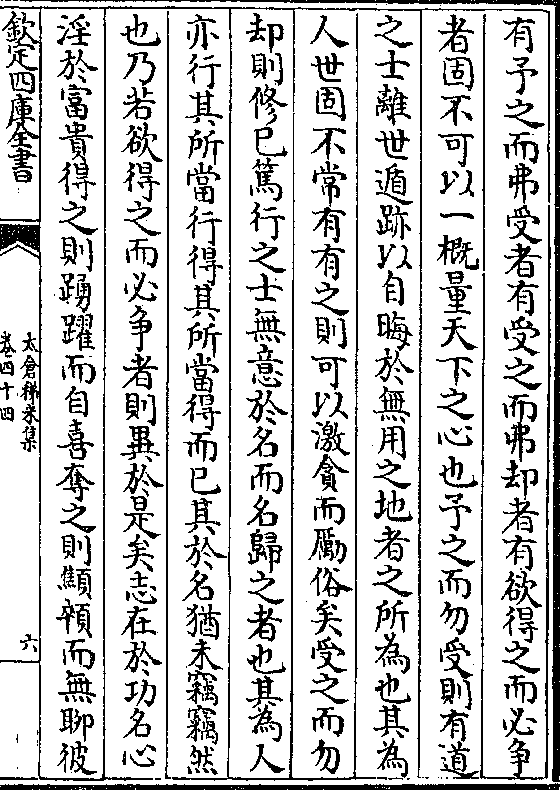 有予之而弗受者有受之而弗却者有欲得之而必争
者固不可以一概量天下之心也予之而勿受則有道
之士離世遁跡以自晦於無用之地者之所為也其為
人世固不常有有之則可以激貪而勵俗矣受之而勿
却則修已篤行之士無意於名而名歸之者也其為人
亦行其所當行得其所當得而已其於名猶未竊竊然
也乃若欲得之而必争者則異於是矣志在於功名心
淫於富貴得之則踴躍而自喜奪之則顦顇而無聊彼
欽定四庫全書
太倉稊米集
卷四十四
六